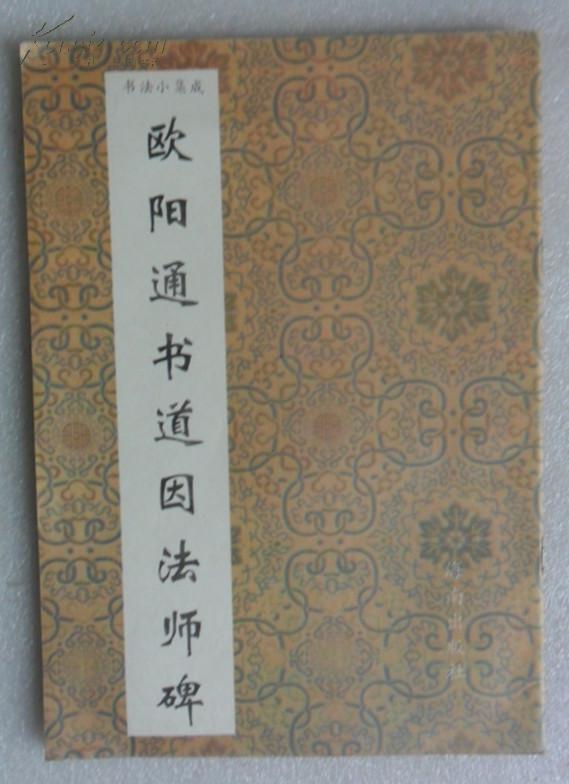 书法小集成
欧阳通书道因法师碑
海南出版社